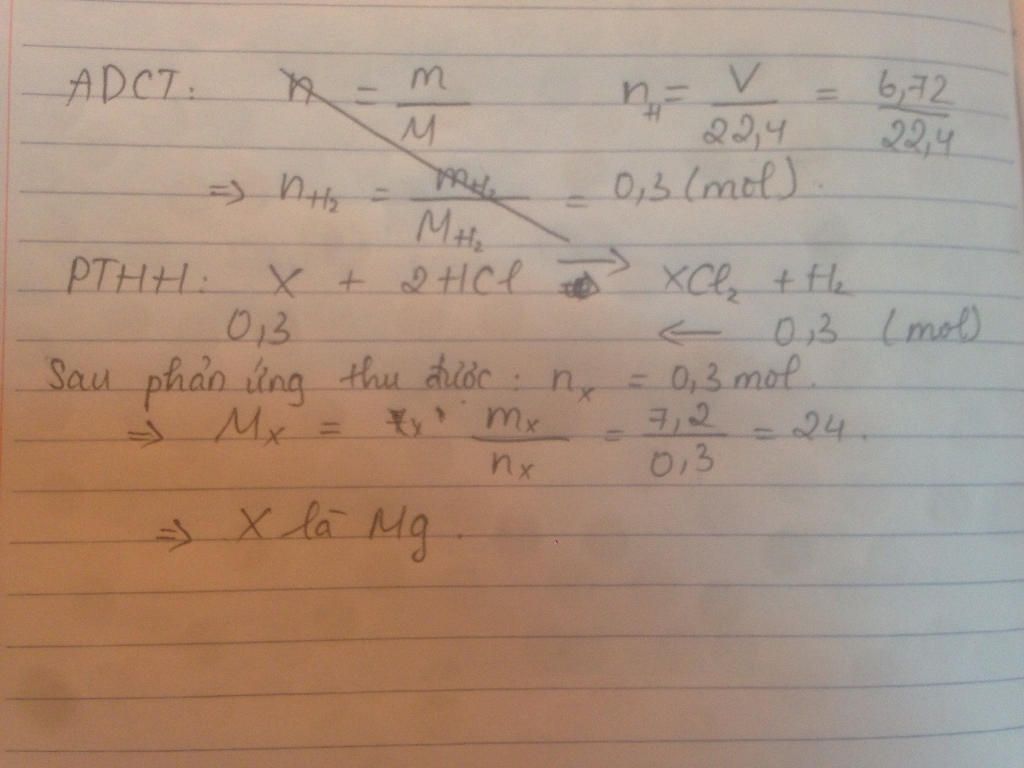 ADCT: n = m/M n_H = V/22,4 = 6,72/22,4
=> n_H₂ = m_H₂/M_H₂ = 0,3 (mol).
PTHH: X + 2HCl → XCl₂ + H₂
0,3 ← 0,3 (mol)
Sau phản ứng thu được: n_x = 0,3 mol.
=> M_x = m_x/n_x = 7,2/0,3 = 24.
=> X là Mg.